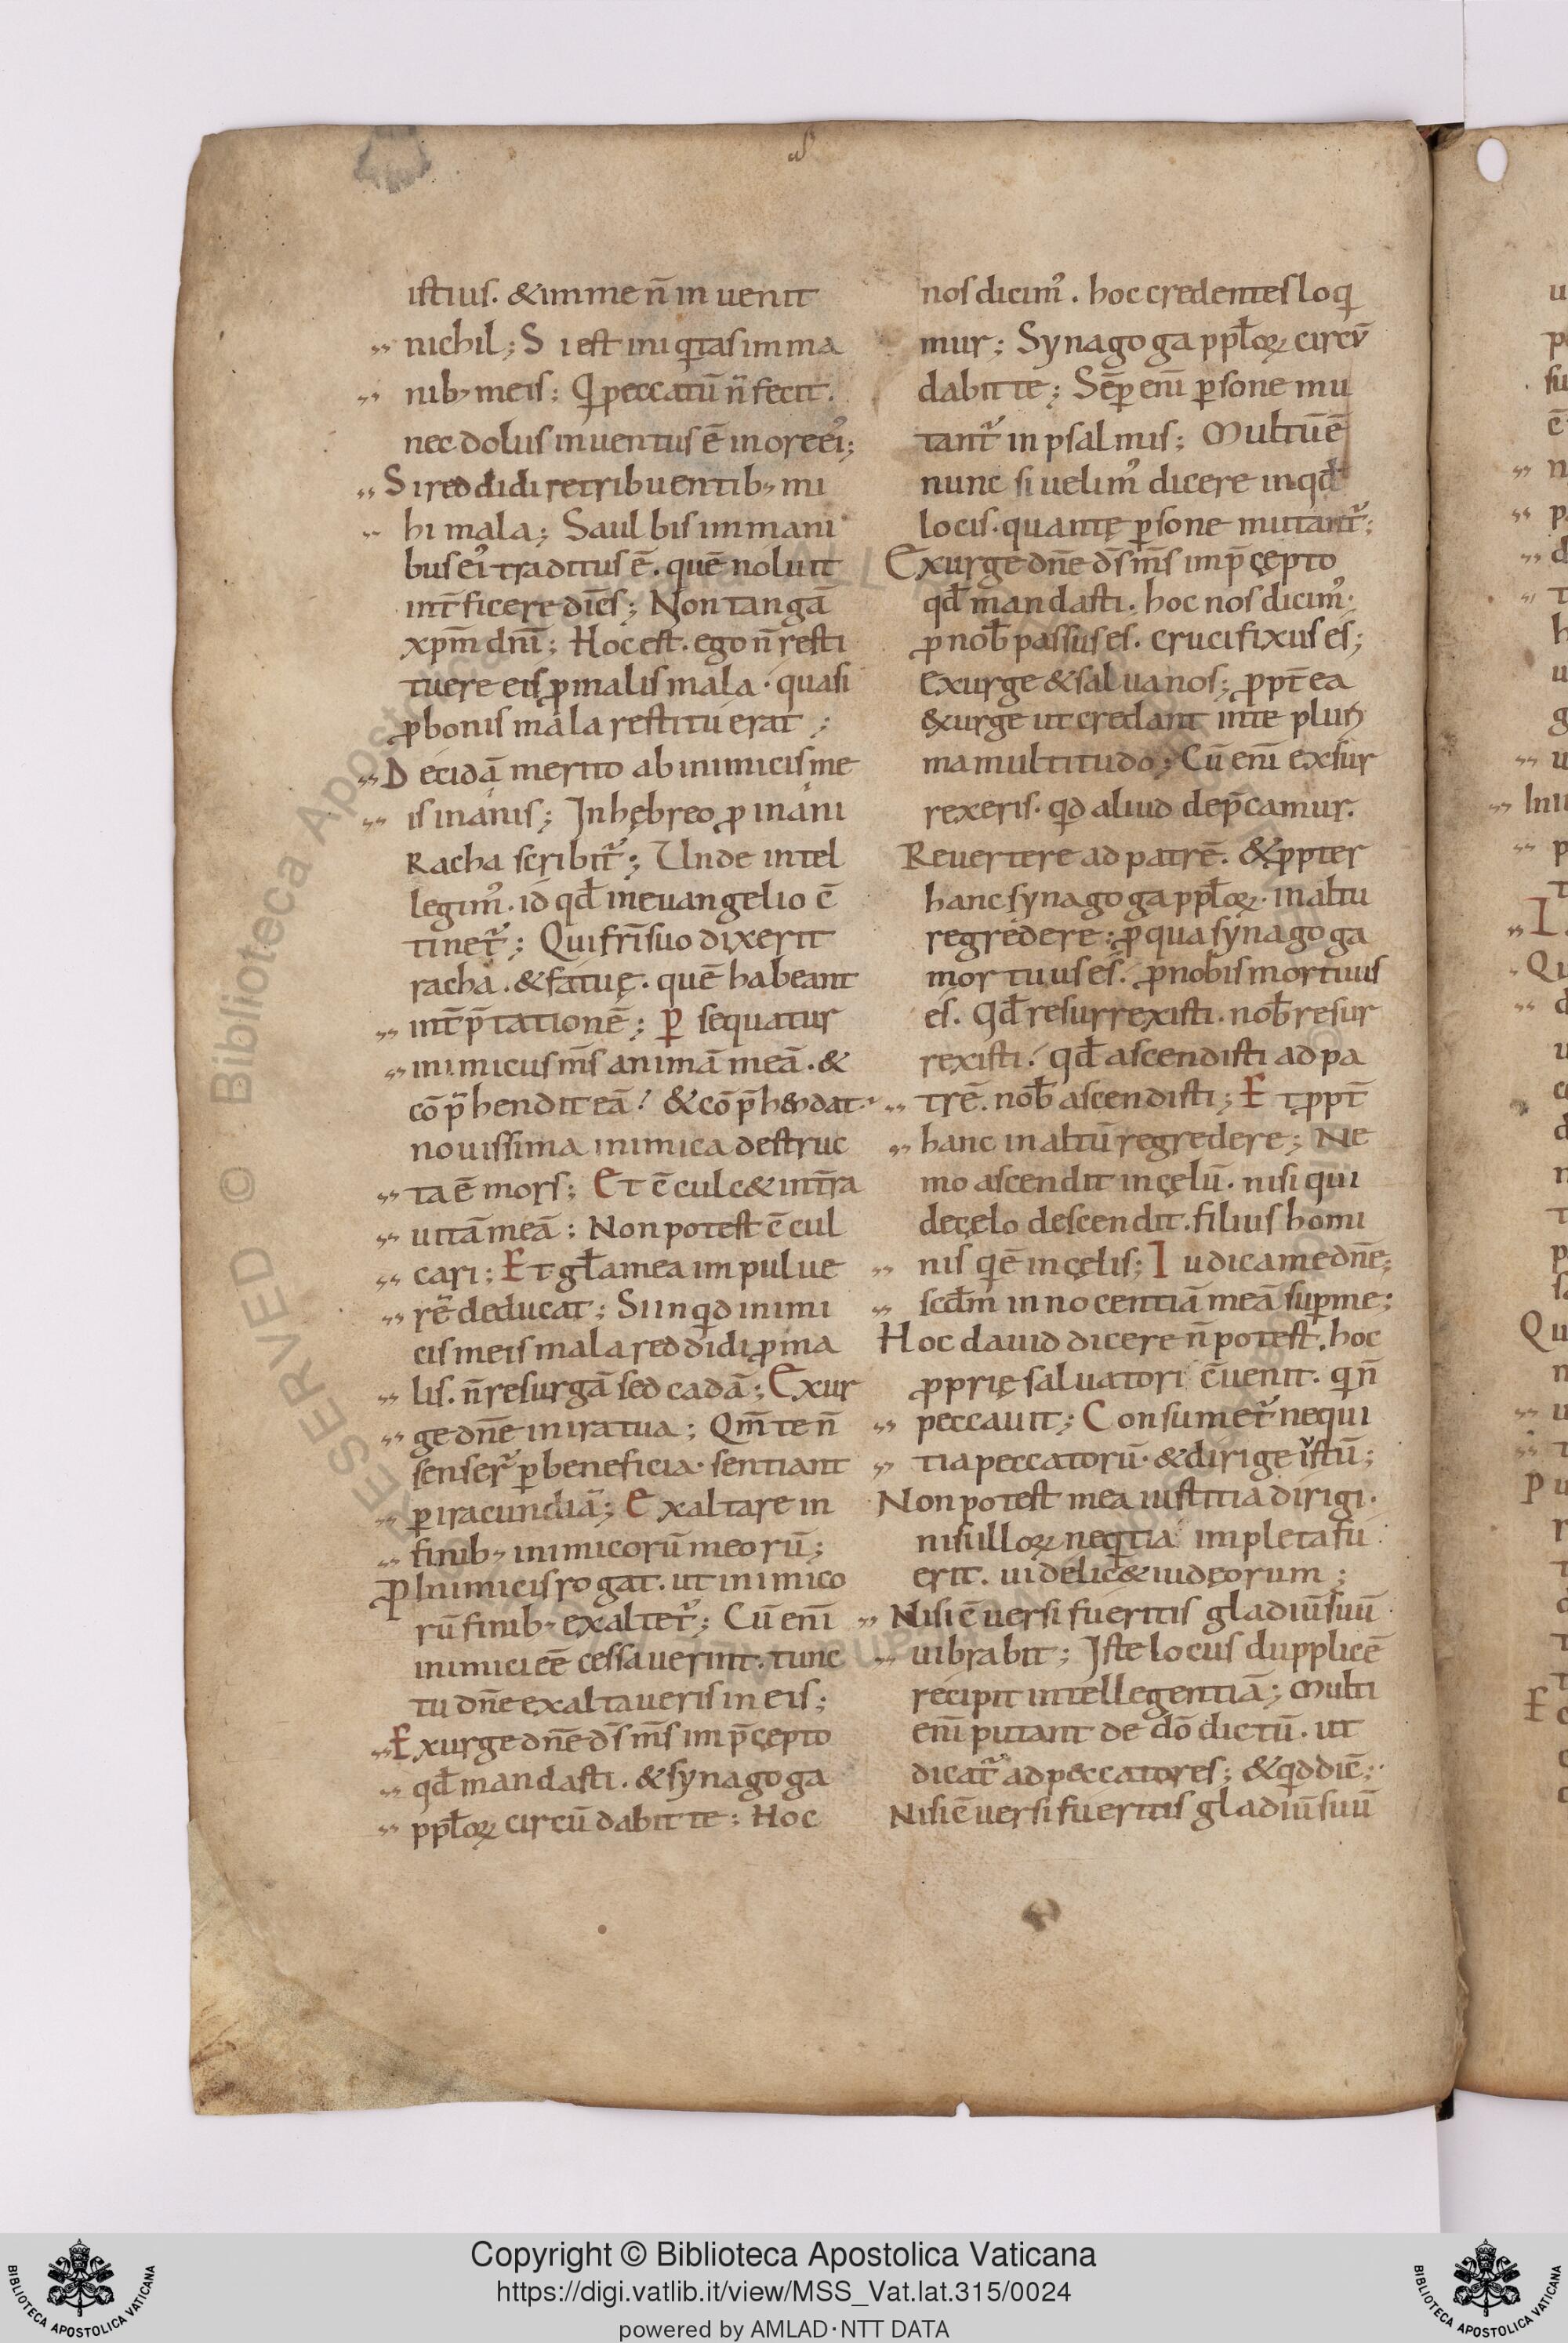 istius. & in me n̄ in uenit
nichil; Si est iniq̇tas in ma
nib; meis; Qi peccatū n̄ fecit.
nec dolus inuentus ē in ore ei᾿;
Si reddidi retribuentib; mi
hi mala; Saul bis in mani
bus ei᾿ traditus ē. quē noluit
int̄ficere dic̄s; Non tangā
xp̄m dn̄i; Hoc est. ego n̄ resti
tuere eis ꝓ malis mala. quasi
ꝓ bonis mala restituerat;
Decidā merito ab inimicis me
is inanis; In hębreo ꝓ inani
Racha scribit᾿; Unde intel
legim᾿. id qd̄ in euangelio c̄
tinet᾿; Qui fr̄i suo dixerit
racha. & fatuę. quē habeant
int̄p̄tationē; ꝑsequatur
inimicus m̄s animā meā. &
cōp̄hendit eā! & cōp̄hendat.
nouissima inimica destruc
ta ē mors; Et c̄culc& int̄ra
uitā meā; Non potest c̄cul
cari; Et gl̄a mea in pulue
rē deducat; Si inq̇d inimi
cis meis mala reddidi ꝓ ma
lis. n̄ resurgā sed cadā; Exur
ge dn̄e in ira tua; Qm̄ te n̄
senser᾿ ꝑ beneficia. sentiant
ꝑ iracundiā; Exaltare in
finib; inimicorū meorū;
ꝓ Inimicis rogat. ut inimico
rū finib; exaltet᾿; Cū eni̅
inimici eē cessauerint. tunc
tu dn̄e exaltaueris in eis;
Exurge dn̄e d̄s m̄s in p̄cępto
qd̄ mandasti. & synagoga
ppl̄oꝝ circū dabit te; Hoc
nos dicim᾿. hoc credentes loqi
mur; Synagoga ppl̄oꝝ circū
dabit te; Sēꝑ eni̅ ꝑsone mu
tant᾿ in psalmis; Multū ē
nunc si uelim᾿ dicere in qd̄
locis. quantę ꝑsone mutant᾿;
Exurge dn̄e d̄s m̄s in p̄cępto
qd̄ mandasti. hoc nos dicim᾿.
ꝓ nob̄ passus es. crucifixus es;
exurge & salua nos; ꝓpt̄ea
&urge ut credant in te pluri
ma multitudo; Cū eni̅ exsur
rexeris. qd aliud dep̄camur.
Reuertere ad patrē. & ꝓpter
hanc synagoga ppl̄oꝝ. in altu
regredere: ꝓ qua synagoga
mortuus es. ꝓ nobis mortuus
es. Qd̄ resurrexisti. nob̄ resur
rexisti! qd̄ ascendisti ad pa
trē. nob̄ ascendisti; Et ꝓpt̄
hanc in altū regredere; Ne
mo ascendit in cęlū. nisi qui
de cęlo descendit. filius homi
nis q̇ ē in cęlis; Iudica me dn̄e;
scd̄m innocentiā meā suꝑ me;
Hoc dauid dicere n̄ potest. hoc
ꝓprię saluatori c̄uenit. qi n̄
peccauit; Consumet᾿ nequi
tia peccatorū. & dirige i᾿stū;
Non potest mea iustitia dirigi.
nisi illoꝝ neq̇tia impleta fu
erit. uidelic& iudęorum;
Nisi c̄uersi fueritis gladiū suū
uibrabit; Iste locus dupplicē
recipit intellegentiā; Multi
eni̅ putant de dō dictū. ut
dicat᾿ ad peccatores; & q̇d dic̄;
Nisi c̄uersi fueritis gladiū suū
Copyright © Biblioteca Apostolica Vaticana
https://digi.vatlib.it/view/MSS_Vat.lat.315/0024
powered by AMLAD·NTT DATA